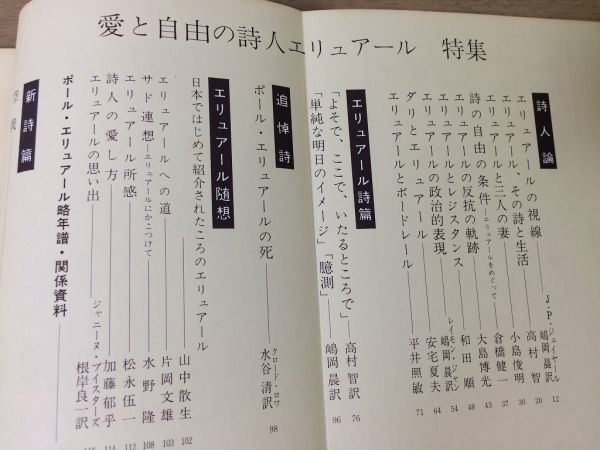 愛と自由の詩人エリュアール 特集
詩人論
エリュアールの視線 J・P・ジュイヤール 嶋岡晨訳 12
エリュアール、その詩と生活 高村智 20
エリュアールと三人の妻 小島俊明 30
詩の自由の条件―エリュアールをめぐって 倉橋健一 37
エリュアールの反抗の軌跡 大島博光 43
エリュアールとレジスタンス 和田順 48
エリュアールの政治的表現 レイモン・ジャン 嶋岡晨訳 54
ダリとエリュアール 安宅夏夫 64
エリュアールとボードレール 平井照敏 71
エリュアール詩篇
「よそで、ここで、いたるところで」 高村智訳 76
「単純な明日のイメージ」「臆測」 嶋岡晨訳 96
追悼詩
ポール・エリュアールの死 クロード・ロワ 水谷清訳 98
エリュアール随想
日本ではじめて紹介されたころのエリュアール 山中散生 102
エリュアールへの道 片岡文雄 103
サド連想―エリュアールにかこつけて 水野隆 108
エリュアール所感 松永伍一 112
詩人の愛し方 加藤郁乎 114
エリュアールの思い出 ジャニーヌ・ブイスーズ 根岸良一訳 115
ポール・エリュアール略年譜・関係資料
新詩篇